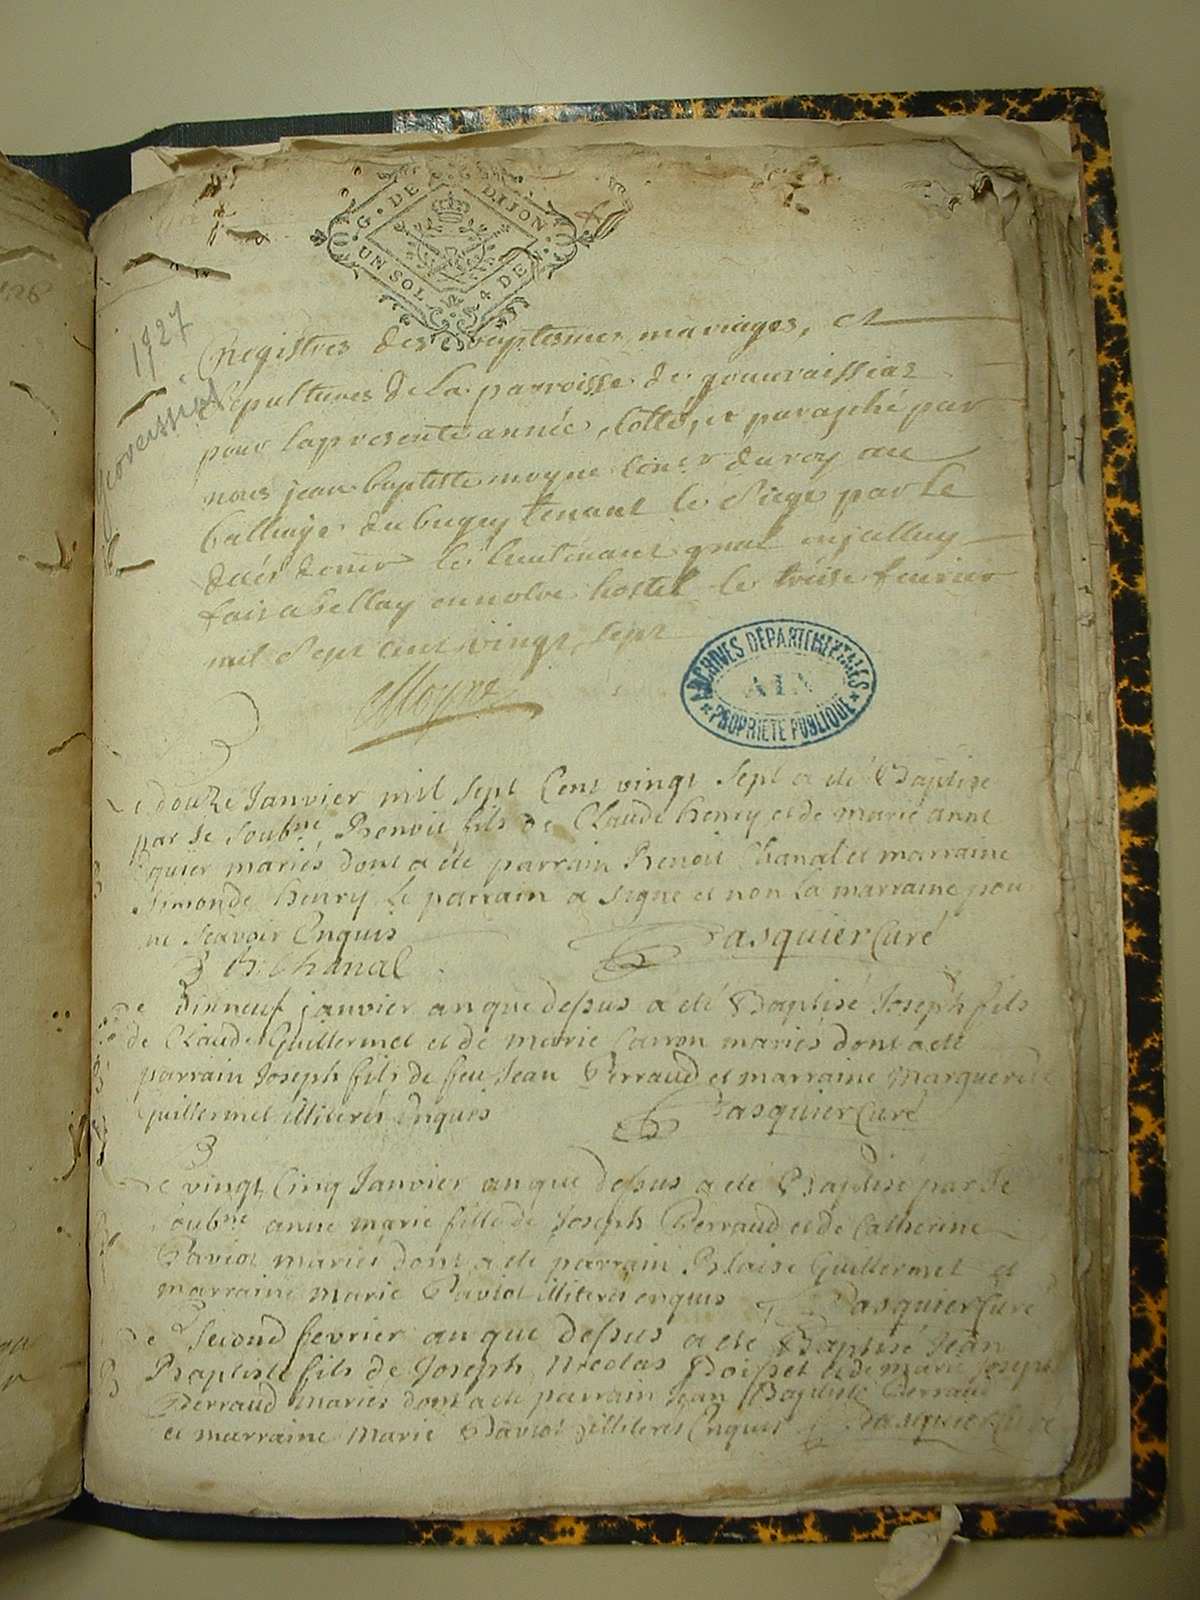 G. DE DIJON
UN SOL 4 DEN.
1727
Registres des baptesmes, mariages, et
sepultures de la parroisse de gouvraissias
pour la presente année, cotté, et paraphé par
nous jean baptiste moyne Coner du roy au
balliage du bugey tenant le siege par le
deces de mr le lieutenant gnal
fait a bellay en notre hostel le treise fevrier
mil sept cent vingt sept
Moyne
ARCHIVES DÉPARTEMENTALES
AIN
PROPRIÉTÉ PUBLIQUE
Le douze Janvier mil sept Cent vingt sept a eté Baptise
par Je Soubne Benoit fils de Claude henry et de marie anne
mariés dont a eté parrain Benoit Chanal et marraine
Simonde henry le parrain a signe et non la marraine pou
ne scavoir Enquis Pasquier Curé
B Chanal
Le Dixneuf janvier an que dessus a eté Baptisé Joseph fils
de Claude Guillermet et de marie Carron mariés dont a eté
parrain Joseph fils de feu Jean Perraud et marraine Marguerite
Guillermet illiterés Enquis Pasquier Curé
B
Le vingt Cinq Janvier an que dessus a eté Baptisé par Je
Soubne anne marie fille de Joseph Perraud et de Catherine
Paviot mariés dont a eté parrain Blaise Guillermet et
marraine marie Paviot illiterés enquis Pasquier Curé
Le second fevrier an que dessus a eté Baptisé Jean
B Baptiste fils de Joseph Nicolas Poisset et de marie Joseph
Perraud mariés dont a eté parrain Jean Baptiste Perraud
et marraine Marie Paviot illiterés Enquis Pasquier Curé